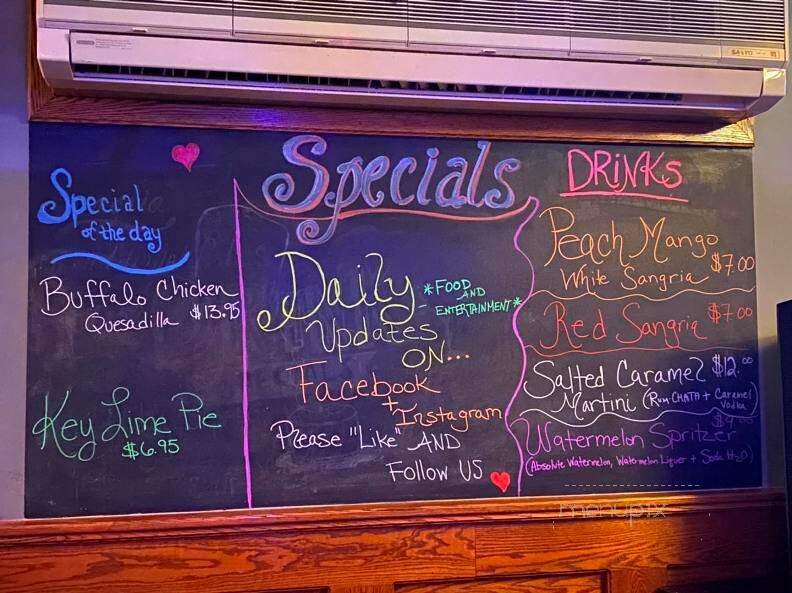 SANYO
Special
of the day
Buffalo Chicken
Quesadilla $13.95
Key Lime Pie
$6.95
Specials
Daily
*FOOD
AND
ENTERTAINMENT*
Updates
ON...
Facebook
+
Instagram
Please "Like" AND
Follow US
DRiNKS
Peach Mango
White Sangria $7.00
Red Sangria $7.00
Salted Caramel $12.00
Martini (RumCHATA + Caramel
Vodka)
$9.00
Watermelon Spritzer
(Absolute Watermelon, Watermelon Liquer + Soda H2O)
menupix